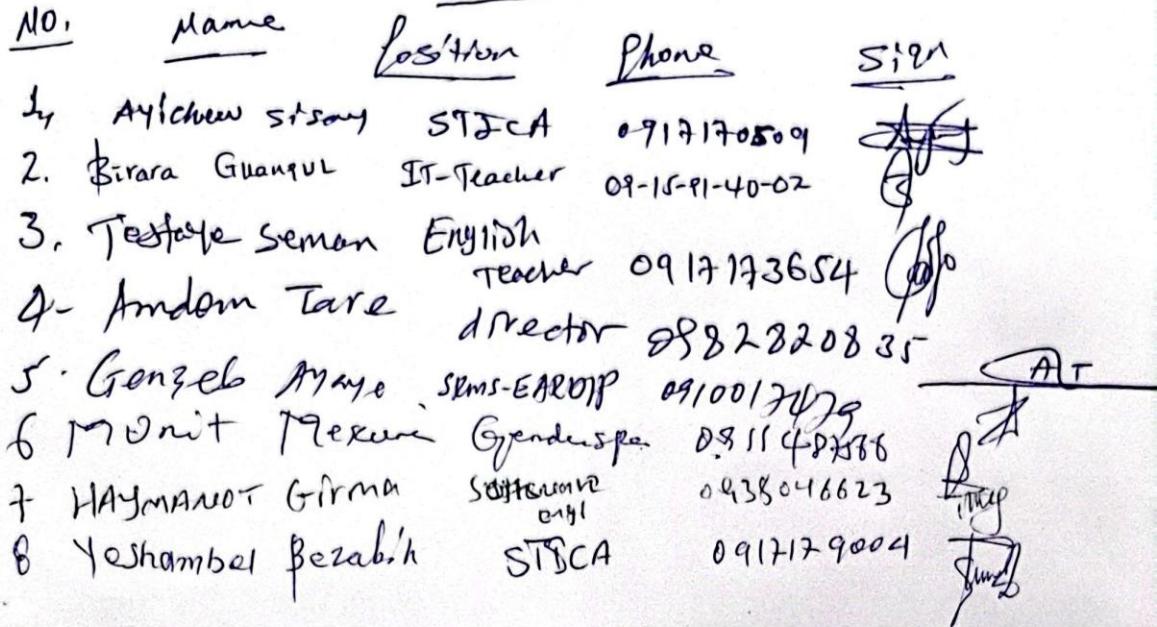 NO. Name Position Phone Sign
1, Aylchew sisay STICA 0917170509
2. Birara Guangul IT-Teacher 09-15-91-40-02
3. Tesfaye seman English
Teacher 0917173654
4- Amdom Tare
director 0982820835
5. Genzeb Ayaye SRMS-EARDIP 0910017479 AT
6 Gender spe
7 HAYMANOT Girma Software
engi 0938046623
8 Yeshambel Bezabih STICA 0917179004